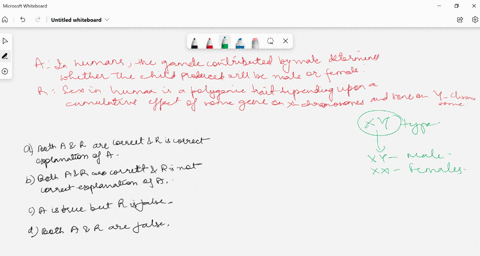 Microsoft Whiteboard
Untitled whiteboard
A: In humans, the gamete contributed by male determines
whether the child produced will be male or female
R: Sex in human is a polygenic trait depending upon a
cumulative effect of some gene on X-chromosomes and some on Y-chromo
some.
XY type
XY - Male-
XX - Females-
a) Both A & R are correct & R is correct
explanation of A.
b) Both A & R are correct & R is not
correct explanation of A.
c) A is true but R is false-
d) Both A & R are false.